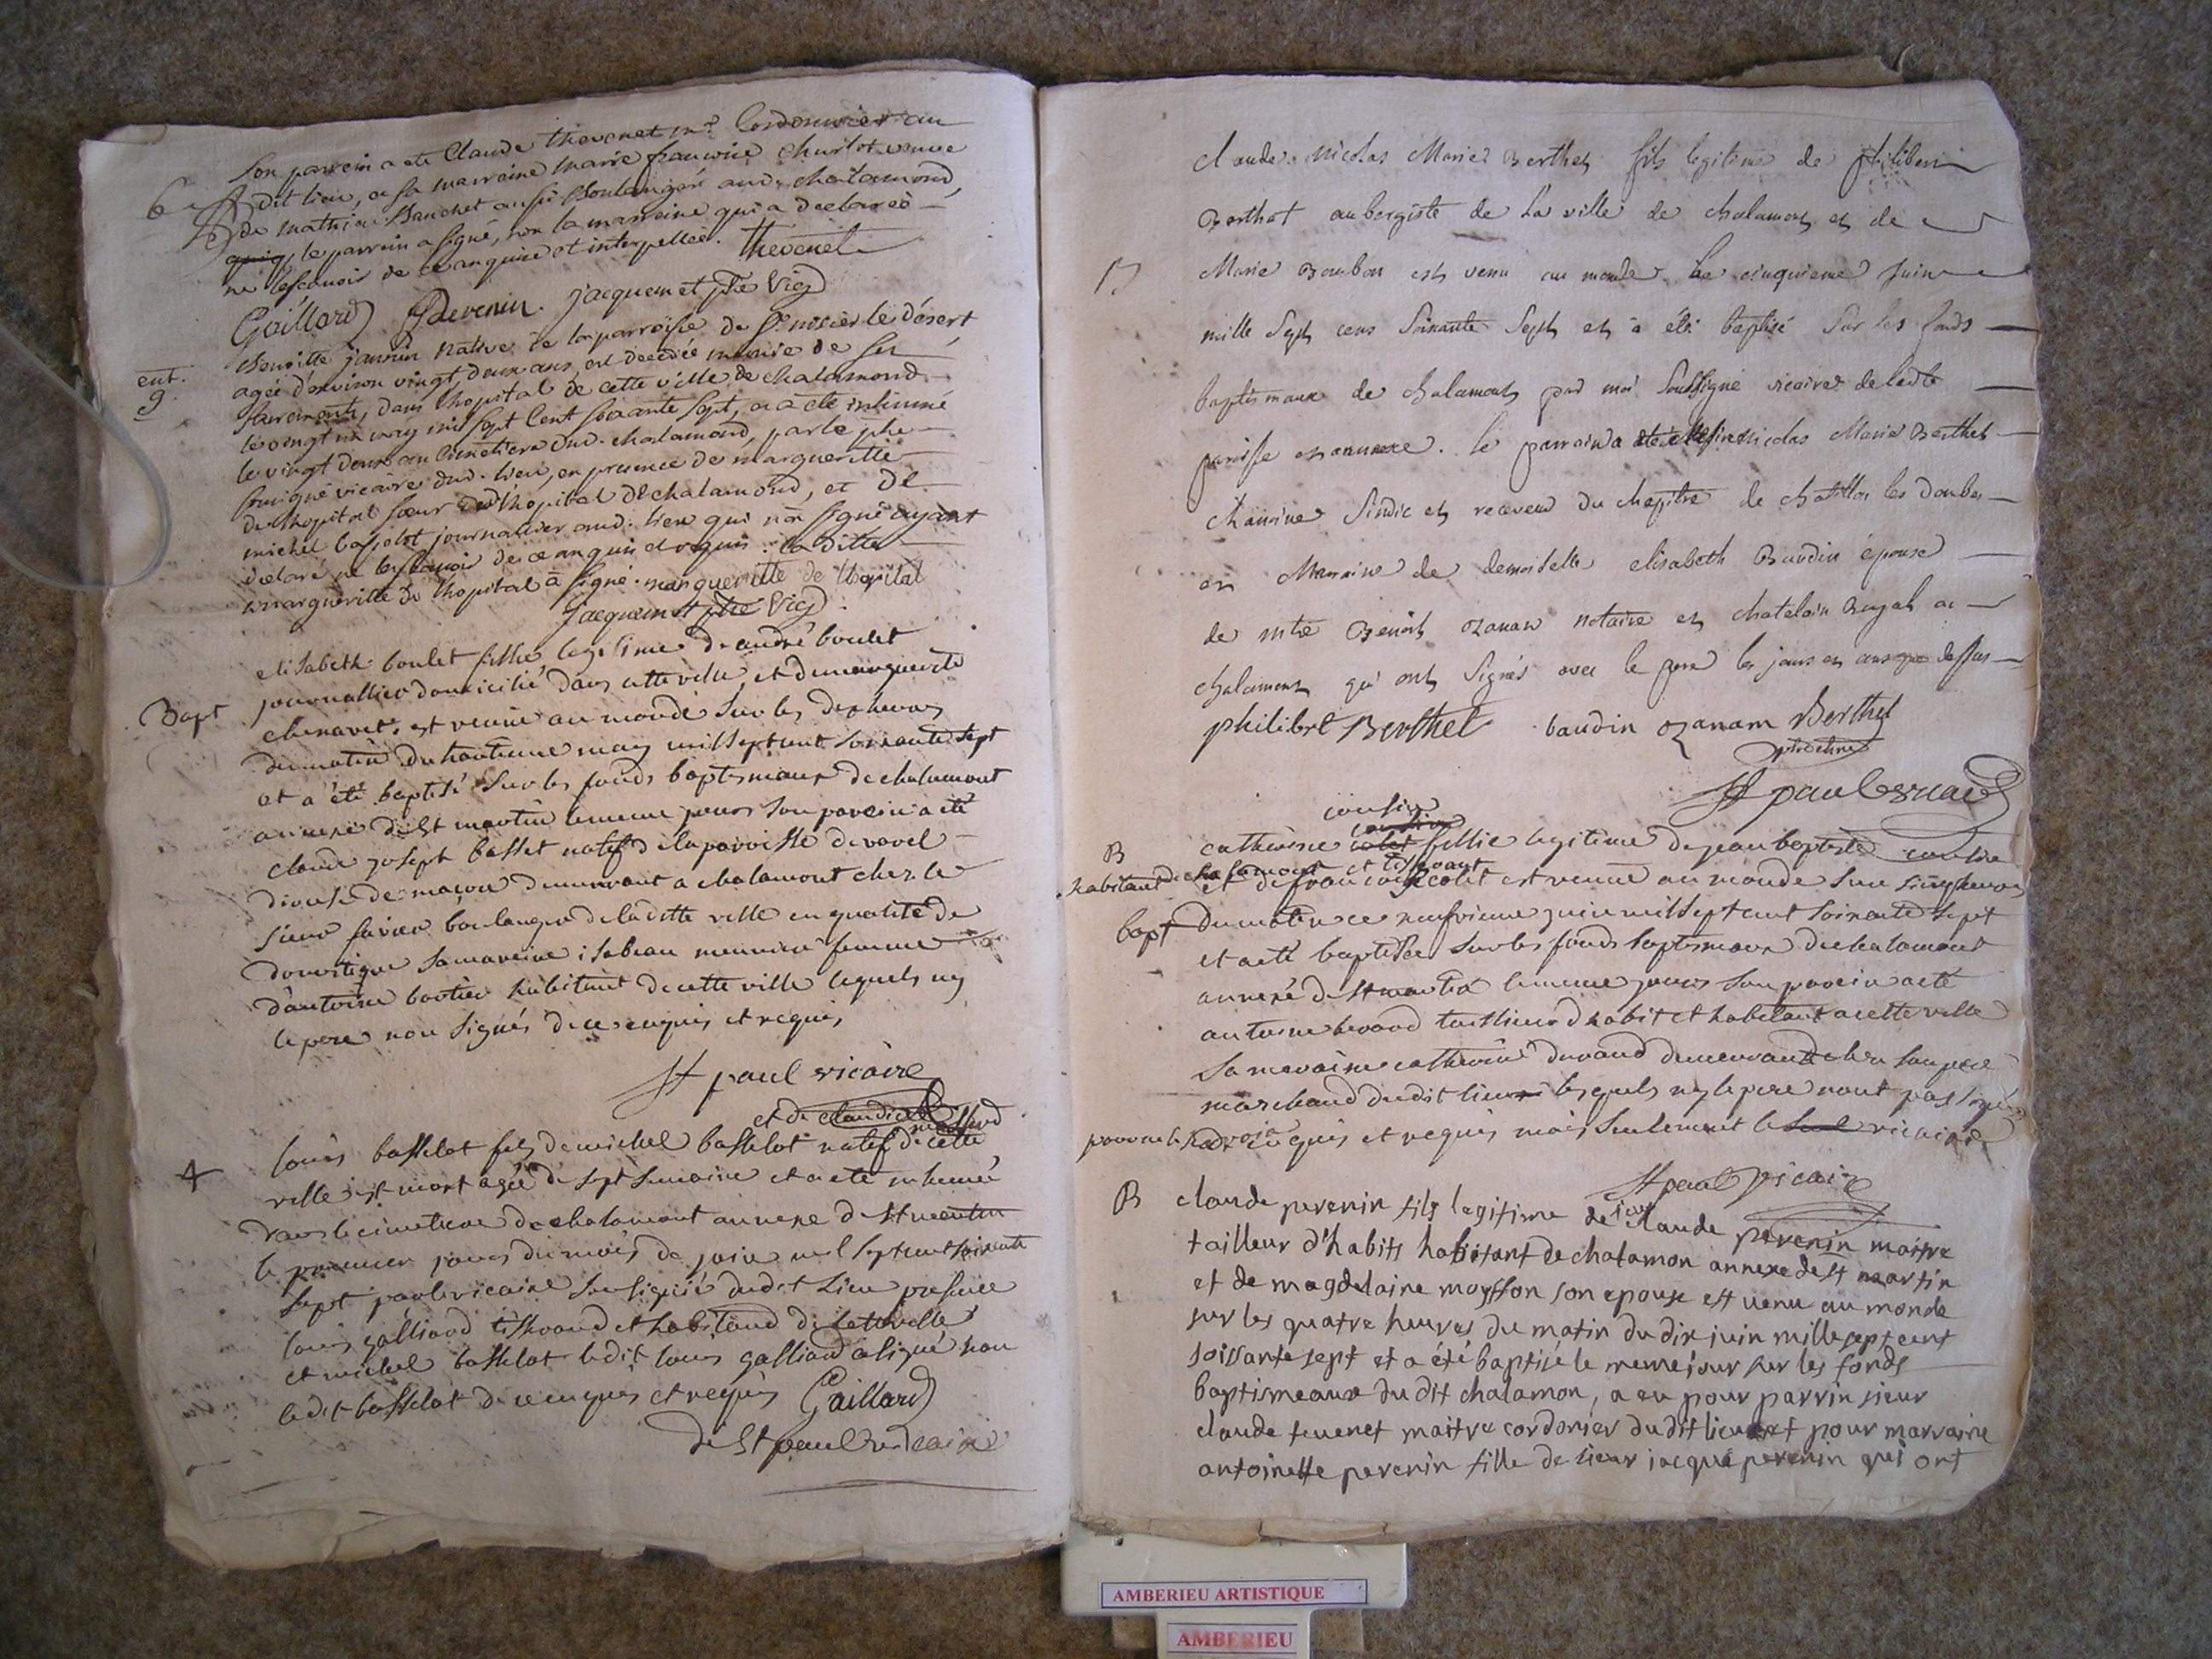 Son parrein a ete Claude thevenet m.e Cordonnier au
6
dit lieu, et sa marraine marie francoise churlot veuve
de mathieu Banchet aussi Boulanger aud. chalamond,
le parrein a signé, non la marreine qui a declareé
ne le scavoir de ce enquise et interpellée. thevenet
Gaillard pevenin. jacquemet ptre Vic.
ent.
9
Benoitte jannin native de la parroisse de St. nisier le désert,
agée d'environ vingt deux ans, est decedée munie de ses
sacrements, dans l'hopital de cette ville de chalamond
le vingt un may mil sept Cent soixante sept, et a été inhumé
le vingt deux au cimetiere dud. chalamond, par le ptre
soussigné vicaire dud. lieu, en presence de margueritte
de l'hopital soeur dud. l'hopital de chalamond, et de
michel basselot journalier aud. lieu qui n'a signé ayant
declaré ne le scavoir de ce enquis et requis. la ditte
margueritte de l'hopital a signé. margueritte de l'hopital
jacquemet ptre Vic.
Bapt
elisabeth boulet fillie legitime de andré boulet
journallier domicilié dans cette ville, et de marguerite
chenavet est venue au monde sur les dix heures
du matin du huitieme may mil sept cent soixante sept
et a été baptisé sur les fonds baptismaux de chalamont
annexe de St martin le meme jour son parein a été
claude joseph basset natif de la paroisse de
de maçon demeurant a chalamont chez le
sieur favier boulanger de la ditte ville en qualité de
domestique sa mareine isabeau meunier femme
d'antoine bortier habitant de cette ville lequels ny
le pere non signés de ce enquis et requis
St paul vicaire
et de claudine
4
louis basselot fils de michel basselot natif de cette
ville est mort agée de sept semaine et a ete inhumé
dans le cimetiere de chalamont annexe de St martin
le premier jour du mois de juin mil sept cent soixante
sept par le vicaire soussigné du dit lieu presence
louis galliard tisserand et habitand de cette ville
et michel basselot le dit louis galliard a signé non
le dit basselot de ce enquis et requis Gaillard
de St paul vicaire
claude nicolas Marie Berthet fils legitime de philibert
Berthet aubergiste de la ville de chalamont et de
B
Marie Bourbon est venu au monde le cinquieme juin
mille sept cens soixante sept et a été baptisé sur les fonds
baptismaux de chalamont par moi soussigné vicaire de ladte
paroisse et annexe. le parrain a été Messire nicolas Marie Berthet
chanoine sindic et receveur du chapitre de chatillon les dombes
et Marraine de demoiselle elisabeth Baudin épouse
de mtre Benoit ozanam notaire et chatelain Royal a
chalamont qui ont signés avec le pere les jours et an que dessus
philibert Berthet baudin ozanam Berthet
St paul vicaire
cousin
B
catherine fillie legitime de jean baptiste cousin
habitant de chalamont et tisserant
et de francoise colet est venue au monde sur cinq heures
bapt
du matin ce neufvieme juin mil sept cent soixante sept
et a été baptisée sur les fonds baptismaux de chalamont
annexe de St martin le meme jour son parein a été
antoine berard tailleur d'habit et habitant a cette ville
sa maraine catherine durand demeurante chez son pere
marchand du dit lieu lesquels ny le pere n'ont pas signé
pour ne le savoir enquis et requis mais seulement le vicaire
St paul vicaire
B
claude pevenin fils legitime de sieur claude pevenin maitre
tailleur d'habits habitant de chalamon annexe de st martin
et de magdelaine moysson son epouse est venu au monde
sur les quatre heures du matin du dix juin mille sept cent
soissante sept et a été baptisé le meme jour sur les fonds
baptismeaux du dit chalamon, a eu pour parrin sieur
claude tevenet maitre cordonier du dit lieu et pour marraine
antoinette pevenin fille de sieur jacque pevenin qui ont
AMBERIEU ARTISTIQUE
AMBERIEU